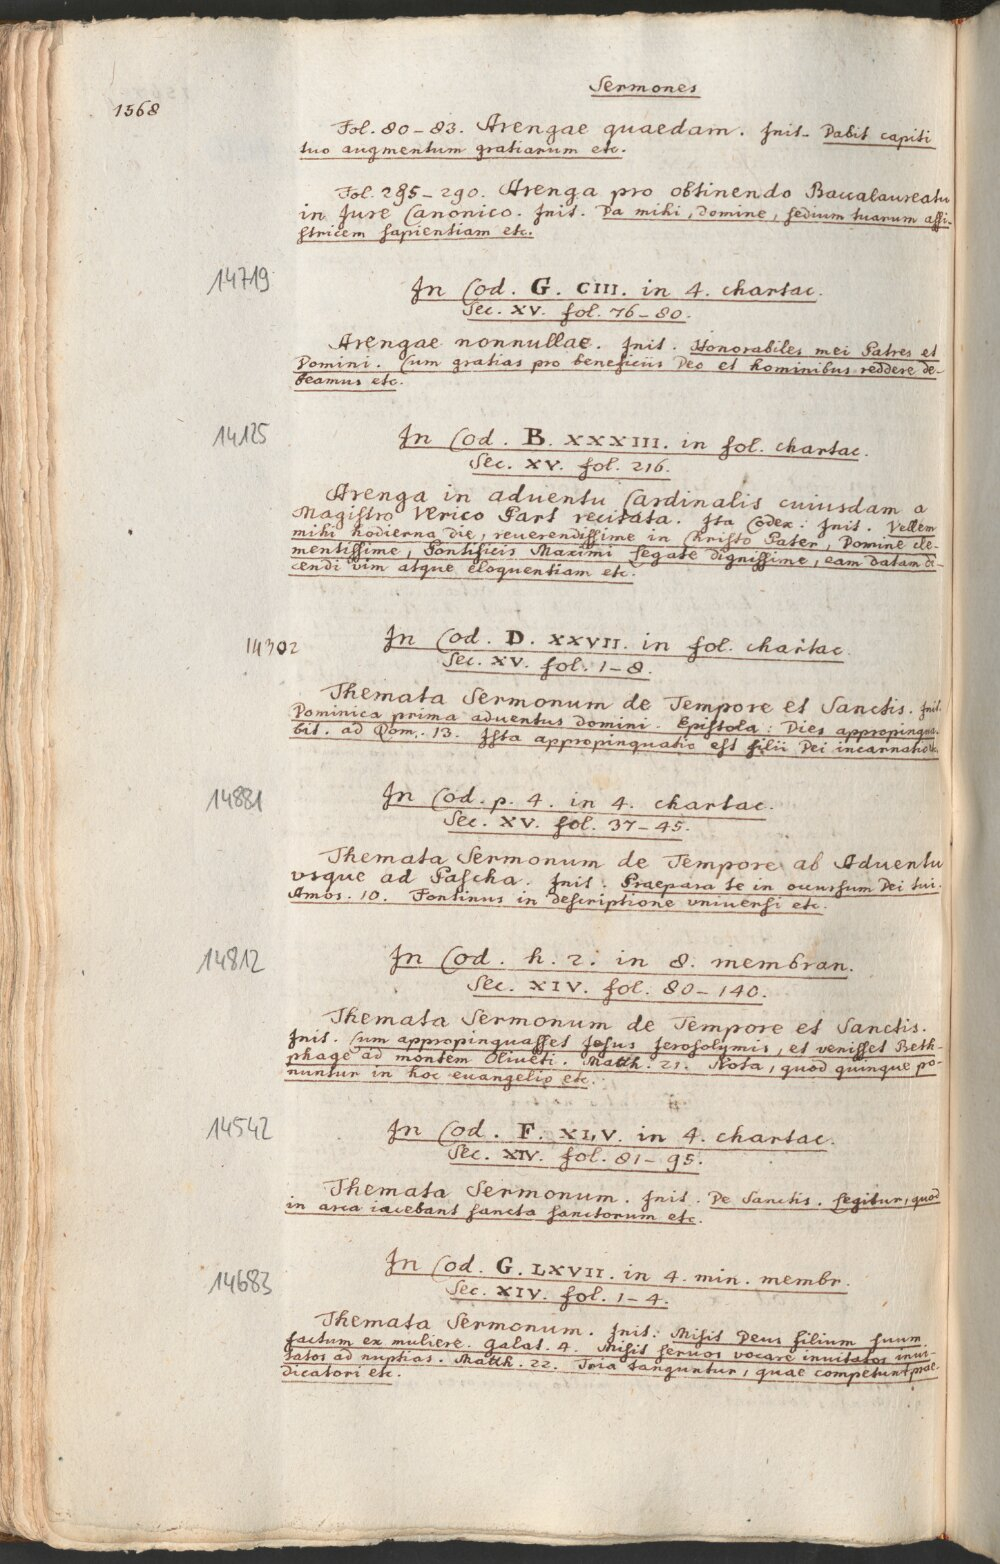 Sermones
1568
Fol. 80-83. Arengae quaedam. Init. Dabit capiti
tuo augmentum gratiarum etc.
Fol. 285-290. Arenga pro obtinendo Baccalaureatu
in Jure Canonico. Init. Da mihi, Domine, sedium tuarum assi-
stricem sapientiam etc.
14719
In Cod. G. CIII. in 4. chartac.
Sec. XV. fol. 76-80.
Arengae nonnullae. Init. Honorabiles mei Patres et
Domini. Cum gratias pro beneficiis Deo et hominibus reddere de-
beamus etc.
14125
In Cod. B. XXXIII. in fol. chartac.
Sec. XV. fol. 216.
Arenga in adventu Cardinalis cuiusdam a
Magistro Verico Part recitata. Ita Codex: Init. Vellem
mihi hodierna die, reuerendissime in Christo Pater, Domine cle-
mentissime, Pontificis Maximi Legate dignissime, eam datam di-
cendi vim atque eloquentiam etc.
14302
In Cod. D. XXVII. in fol. chartac.
Sec. XV. fol. 1-8.
Themata Sermonum de Tempore et Sanctis. Init.
Dominica prima aduentus Domini. Epistola: Dies appropinqua-
bit. ad Rom. 13. Ista appropinquatio est filii Dei incarnatio etc.
14881
In Cod. p. 4. in 4. chartac.
Sec. XV. fol. 37-45.
Themata Sermonum de Tempore ab Aduentu
vsque ad Pascha. Init. Praepara te in occursum Dei tui.
Amos. 10. Fontinus in descriptione vniuersi etc.
14812
In Cod. h. 2. in 8. membran.
Sec. XIV. fol. 80-140.
Themata Sermonum de Tempore et Sanctis.
Init. Cum appropinquasset Jesus Jerosolymis, et venisset Beth-
phage ad montem Oliueti. Matth. 21. Nota, quod quinque po-
nuntur in hoc euangelio etc.
14542
In Cod. F. XLV. in 4. chartac.
Sec. XIV. fol. 81-95.
Themata Sermonum. Init. De Sanctis. Legitur, quod
in arca iacebant sancta sanctorum etc.
14683
In Cod. G. LXVII. in 4. min. membr.
Sec. XIV. fol. 1-4.
Themata Sermonum. Init. Misit Deus filium suum
factum ex muliere. Galat. 4. Misit seruos vocare inuitatos inui-
tatos ad nuptias. Matth. 22. Tria tanguntur, quae competunt prae-
dicatori etc.